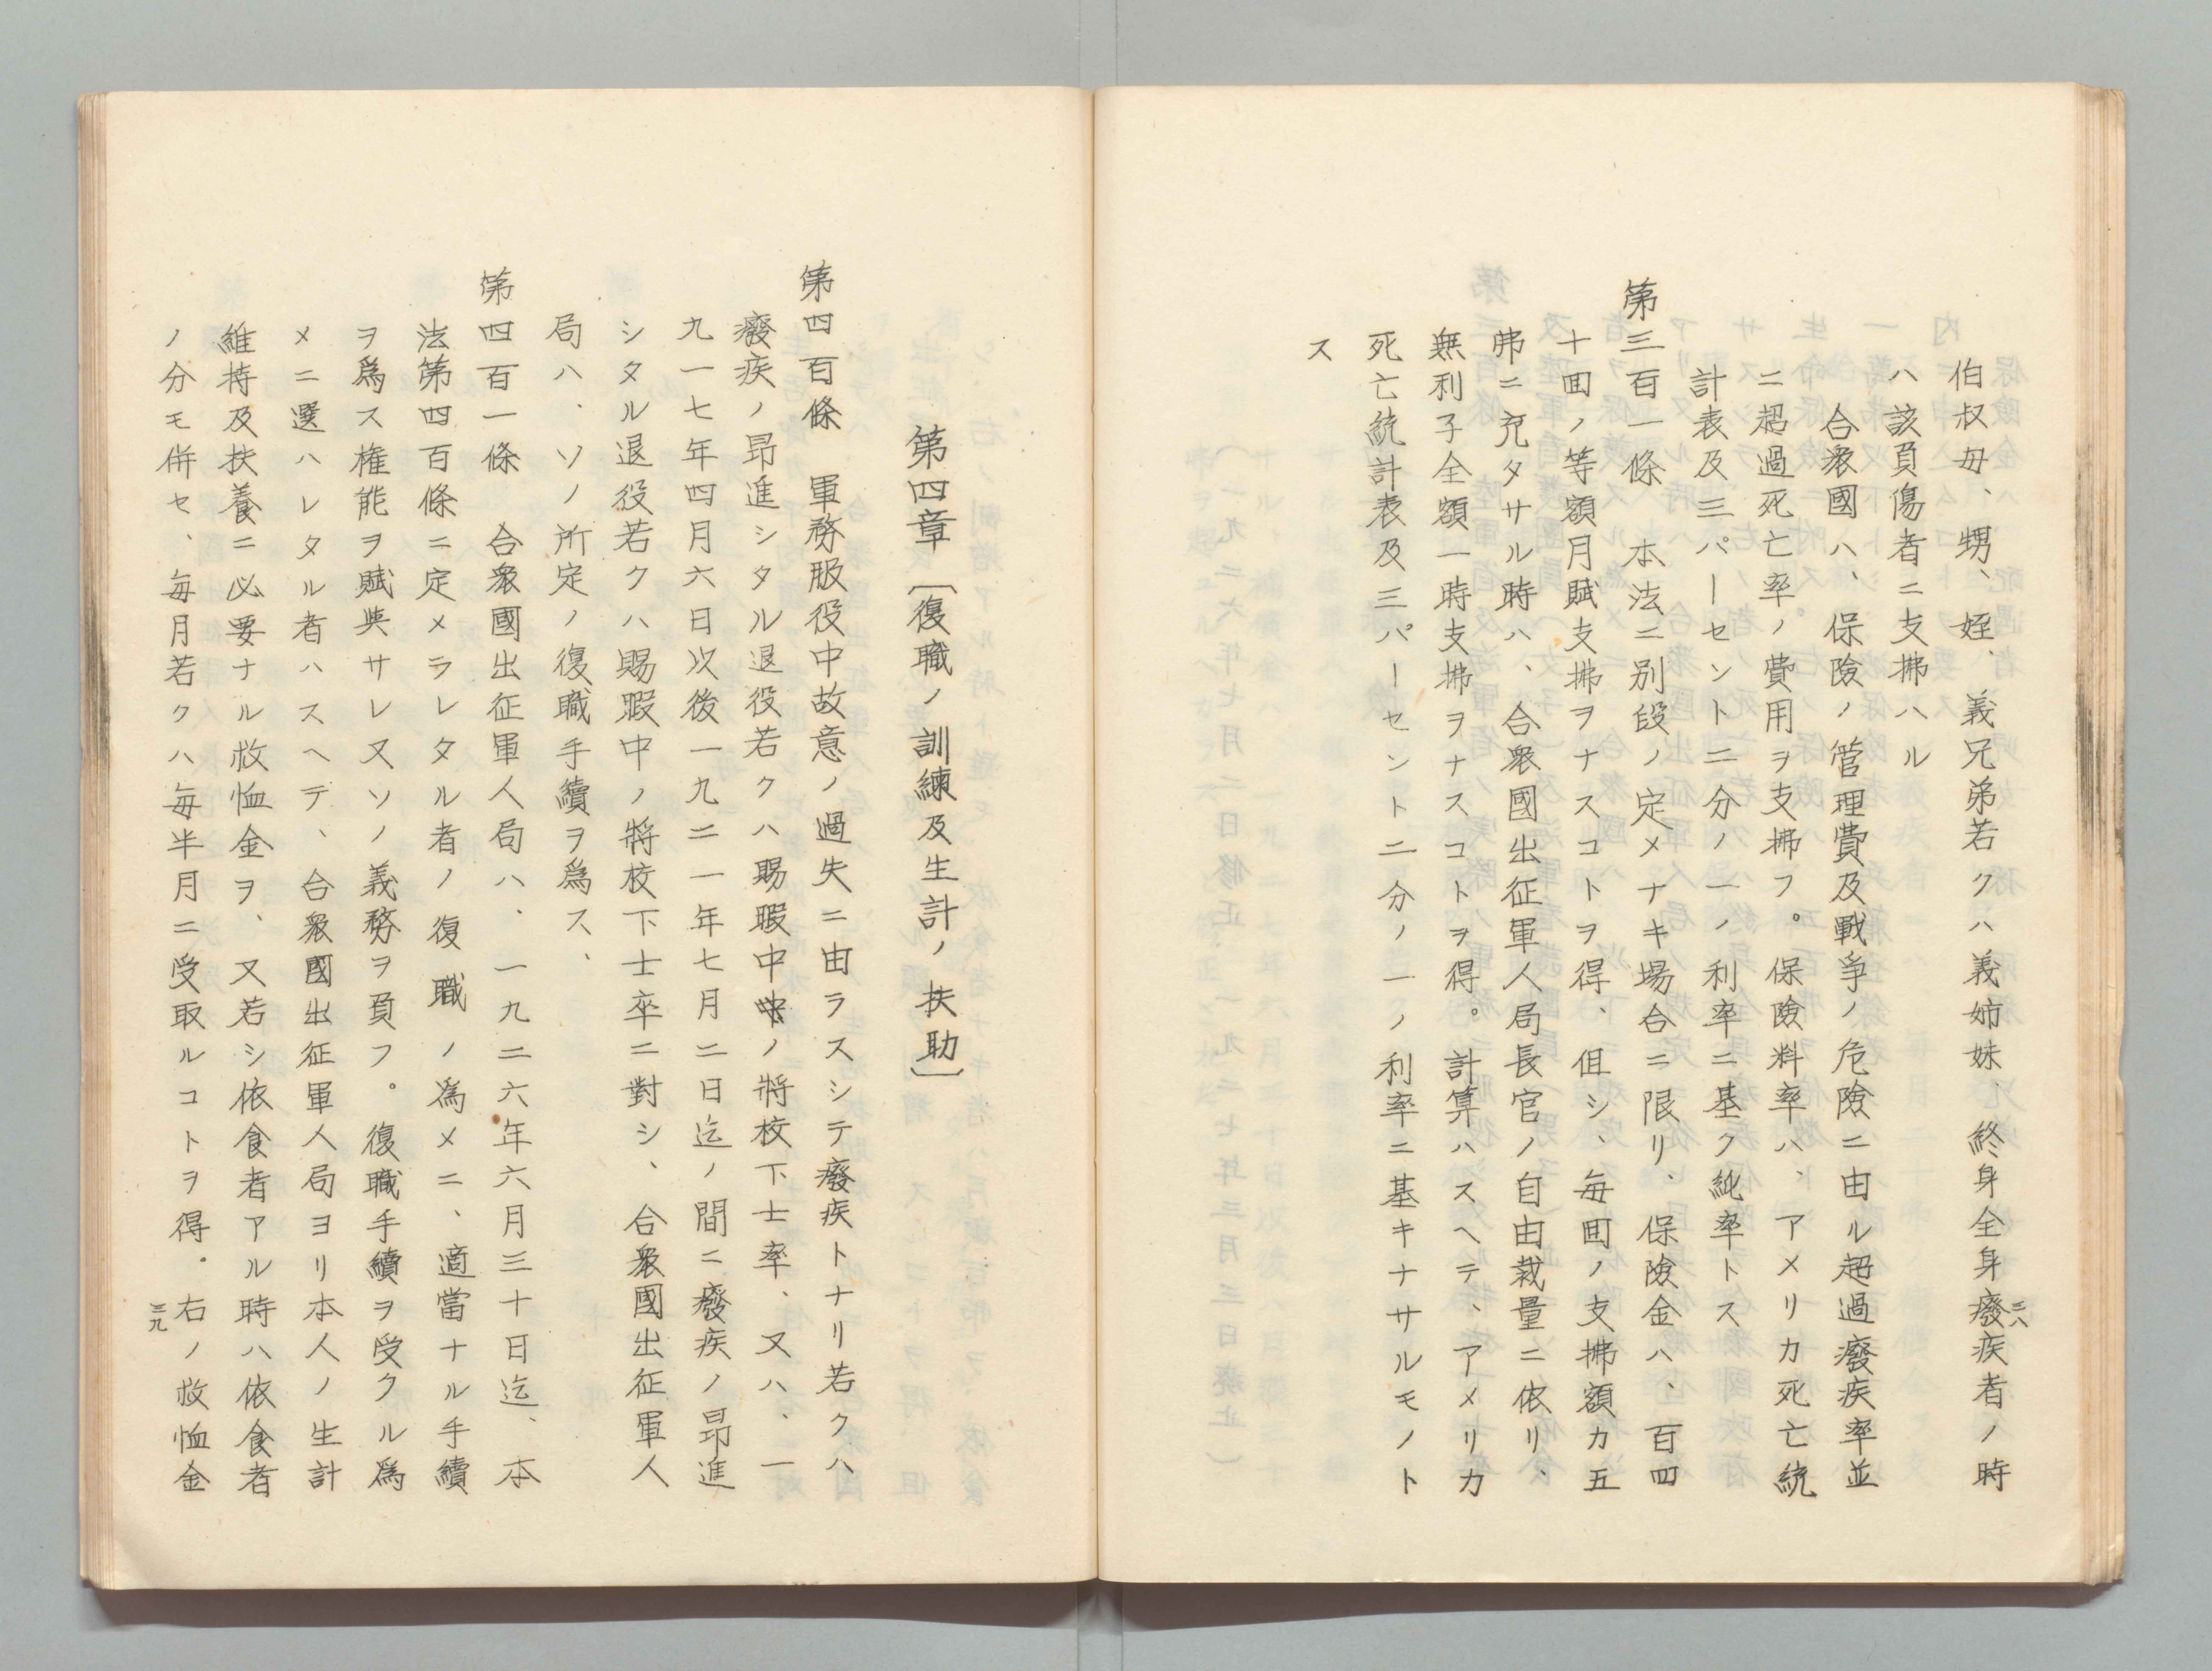 伯叔母、甥、姪、義兄弟若クハ義姉妹、終身全身癈疾者ノ時
ハ該負傷者ニ支拂ハル
合衆國ハ、保險ノ管理費及戰爭ノ危險ニ由ル超過癈疾率並
ニ超過死亡率ノ費用ヲ支拂フ。保險料率ハ、アメリカ死亡統
計表及三パーセント二分ノ一ノ利率ニ基ク純率トス
第三百一條　本法ニ別段ノ定メナキ場合ニ限リ、保險金ハ、百四
十回ノ等額月賦支拂ヲナスコトヲ得、但シ、毎回ノ支拂額カ五
弗ニ充タサル時ハ、合衆國出征軍人局長官ノ自由裁量ニ依リ、
無利子全額一時支拂ヲナスコトヲ得。計算ハスヘテ、アメリカ
死亡統計表及三パーセント二分ノ一ノ利率ニ基キナサルモノト
ス
三八
第四章〔復職ノ訓練及生計ノ扶助〕
第四百條　軍務服役中故意ノ過失ニ由ラスシテ癈疾トナリ若クハ
癈疾ノ昂進シタル退役若クハ賜暇中ノ將校下士率、又ハ、一
九一七年四月六日次後一九二一年七月二日迄ノ間ニ癈疾ノ昂進
シタル退役若クハ賜暇中ノ將校下士卒ニ對シ、合衆國出征軍人
局ハ、ソノ所定ノ復職手續ヲ爲ス、
第四百一條　合衆國出征軍人局ハ、一九二六年六月三十日迄、本
法第四百條ニ定メラレタル者ノ復職ノ爲メニ、適當ナル手續
ヲ爲ス権能ヲ賦與サレ又ソノ義務ヲ負フ。復職手續ヲ受クル爲
メニ選ハレタル者ハスヘテ、合衆國出征軍人局ヨリ本人ノ生計
維持及扶養ニ必要ナル救恤金ヲ、又若シ依食者アル時ハ依食者
ノ分モ併セ、毎月若クハ毎半月ニ受取ルコトヲ得。右ノ救恤金
三九